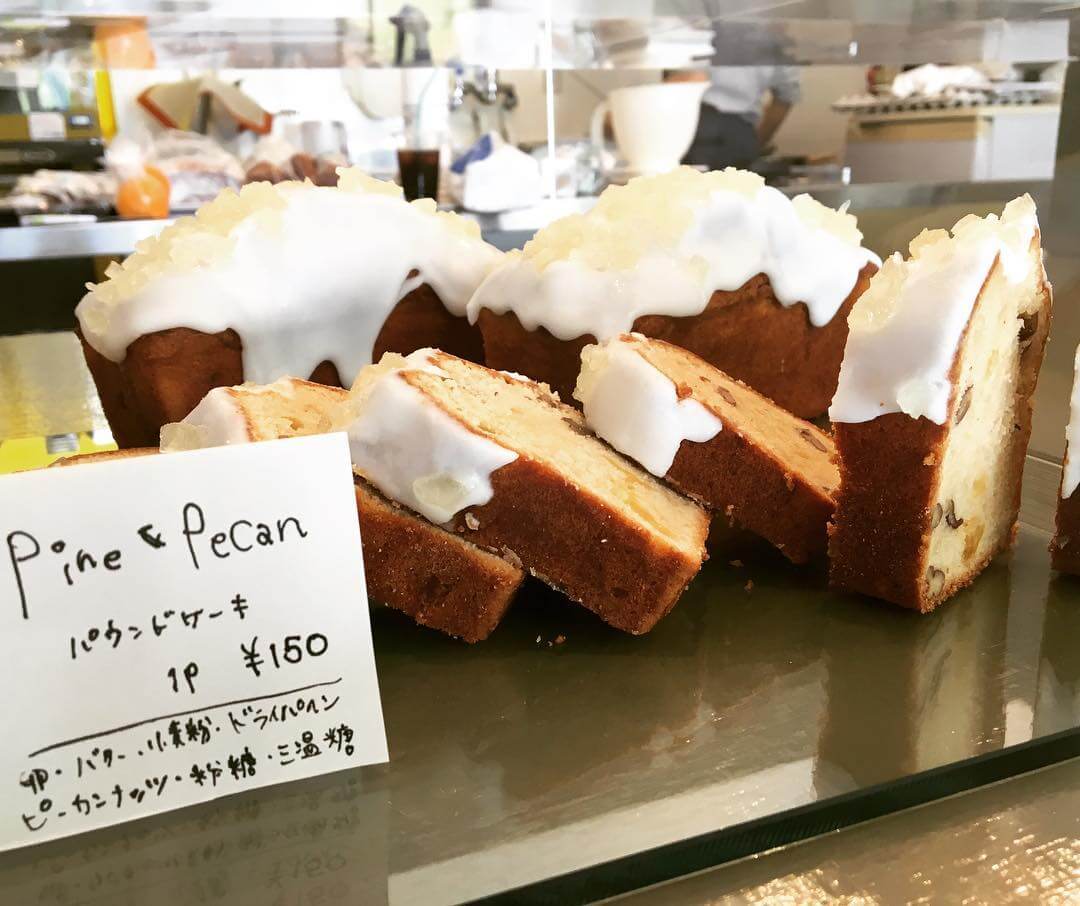 Pine & Pecan
パウンドケーキ
1P ¥150
卵・バター・小麦粉・ドライパイン
ピーカンナッツ・粉糖・三温糖